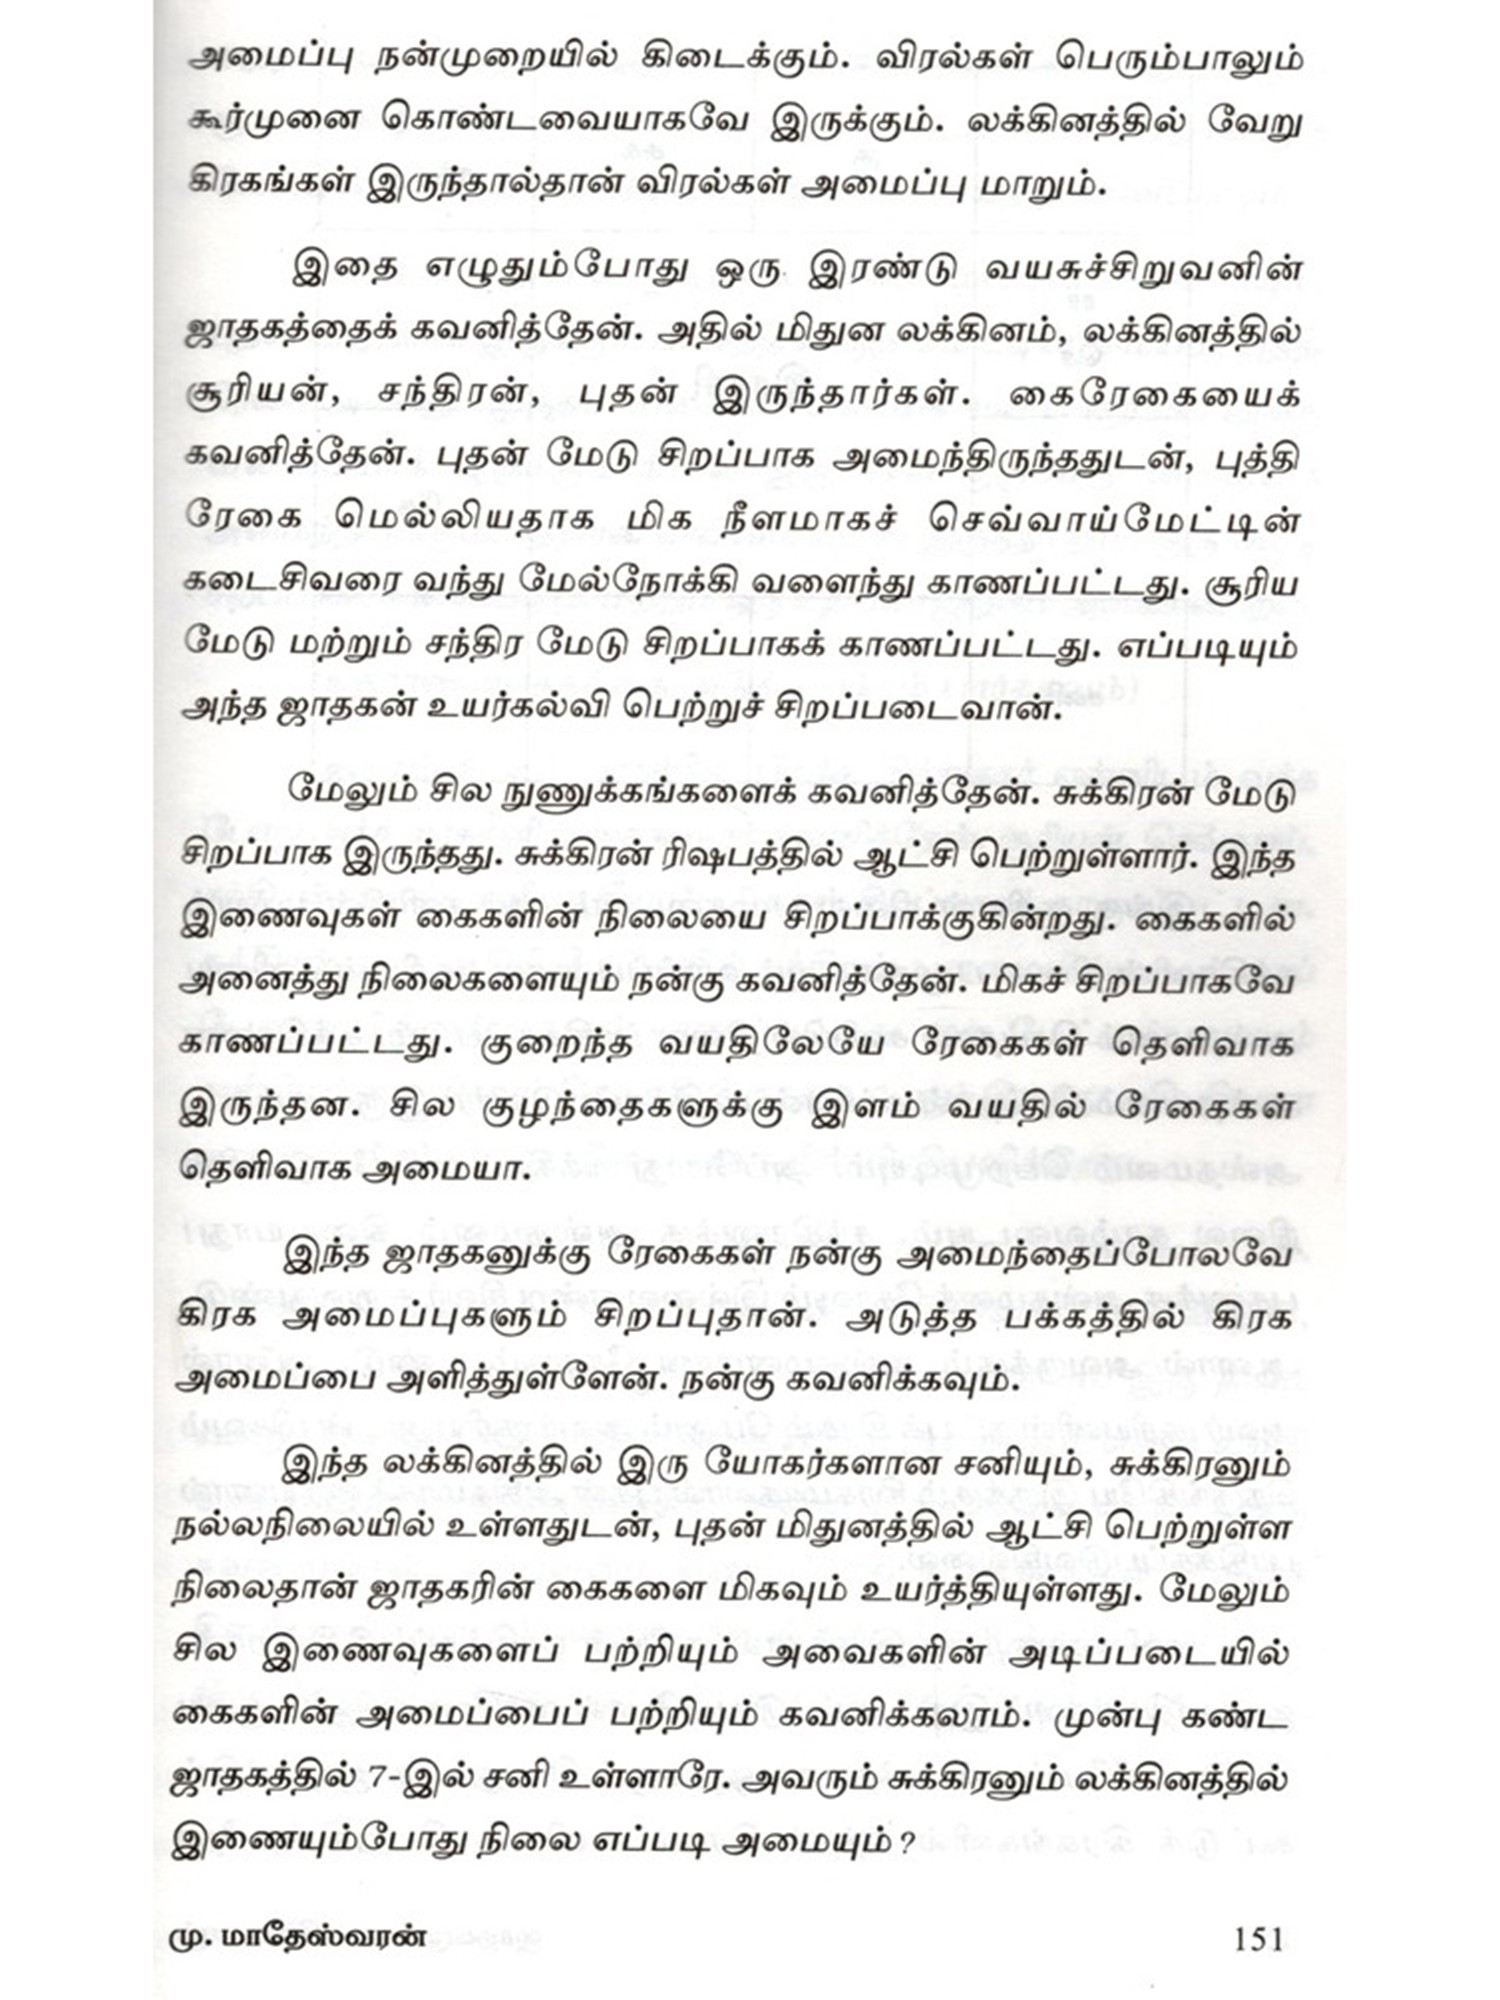 அமைப்பு நன்முறையில் கிடைக்கும். விரல்கள் பெரும்பாலும்
கூர்முனை கொண்டவையாகவே இருக்கும். லக்கினத்தில் வேறு
கிரகங்கள் இருந்தால்தான் விரல்கள் அமைப்பு மாறும்.
இதை எழுதும்போது ஒரு இரண்டு வயசுச்சிறுவனின்
ஜாதகத்தைக் கவனித்தேன். அதில் மிதுன லக்கினம், லக்கினத்தில்
சூரியன், சந்திரன், புதன் இருந்தார்கள். கைரேகையைக்
கவனித்தேன். புதன் மேடு சிறப்பாக அமைந்திருந்ததுடன், புத்தி
ரேகை மெல்லியதாக மிக நீளமாகச் செவ்வாய்மேட்டின்
கடைசிவரை வந்து மேல்நோக்கி வளைந்து காணப்பட்டது. சூரிய
மேடு மற்றும் சந்திர மேடு சிறப்பாகக் காணப்பட்டது. எப்படியும்
அந்த ஜாதகன் உயர்கல்வி பெற்றுச் சிறப்படைவான்.
மேலும் சில நுணுக்கங்களைக் கவனித்தேன். சுக்கிரன் மேடு
சிறப்பாக இருந்தது. சுக்கிரன் ரிஷபத்தில் ஆட்சி பெற்றுள்ளார். இந்த
இணைவுகள் கைகளின் நிலையை சிறப்பாக்குகின்றது. கைகளில்
அனைத்து நிலைகளையும் நன்கு கவனித்தேன். மிகச் சிறப்பாகவே
காணப்பட்டது. குறைந்த வயதிலேயே ரேகைகள் தெளிவாக
இருந்தன. சில குழந்தைகளுக்கு இளம் வயதில் ரேகைகள்
தெளிவாக அமையா.
இந்த ஜாதகனுக்கு ரேகைகள் நன்கு அமைந்தைப்போலவே
கிரக அமைப்புகளும் சிறப்புதான். அடுத்த பக்கத்தில் கிரக
அமைப்பை அளித்துள்ளேன். நன்கு கவனிக்கவும்.
இந்த லக்கினத்தில் இரு யோகர்களான சனியும், சுக்கிரனும்
நல்லநிலையில் உள்ளதுடன், புதன் மிதுனத்தில் ஆட்சி பெற்றுள்ள
நிலைதான் ஜாதகரின் கைகளை மிகவும் உயர்த்தியுள்ளது. மேலும்
சில இணைவுகளைப் பற்றியும் அவைகளின் அடிப்படையில்
கைகளின் அமைப்பைப் பற்றியும் கவனிக்கலாம். முன்பு கண்ட
ஜாதகத்தில் 7-இல் சனி உள்ளாரே. அவரும் சுக்கிரனும் லக்கினத்தில்
இணையும்போது நிலை எப்படி அமையும்?
மு. மாதேஸ்வரன் 151